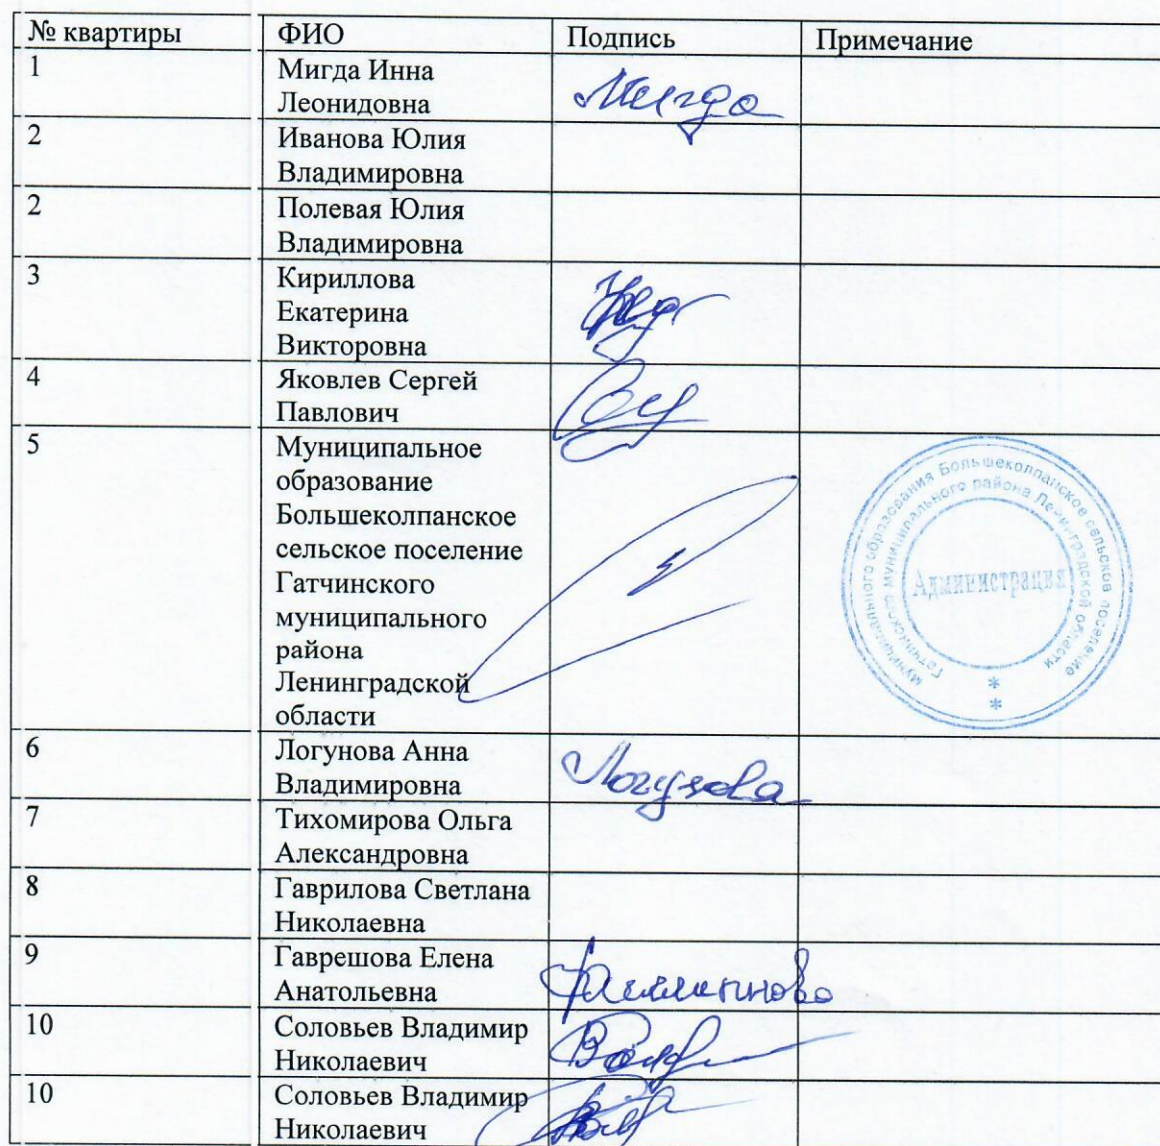 № квартиры ФИО Подпись Примечание
1 Мигда Инна
Леонидовна Мигда
2 Иванова Юлия
Владимировна
2 Полевая Юлия
Владимировна
3 Кириллова
Екатерина
Викторовна
4 Яковлев Сергей
Павлович
5 Муниципальное
образование
Большеколпанское
сельское поселение
Гатчинского
муниципального
района
Ленинградской
области
муниципального образования Большеколпанское сельское поселение
Гатчинского муниципального района Ленинградской области
Администрация
* *
6 Логунова Анна
Владимировна Логунова
7 Тихомирова Ольга
Александровна
8 Гаврилова Светлана
Николаевна
9 Гаврешова Елена
Анатольевна
10 Соловьев Владимир
Николаевич
10 Соловьев Владимир
Николаевич